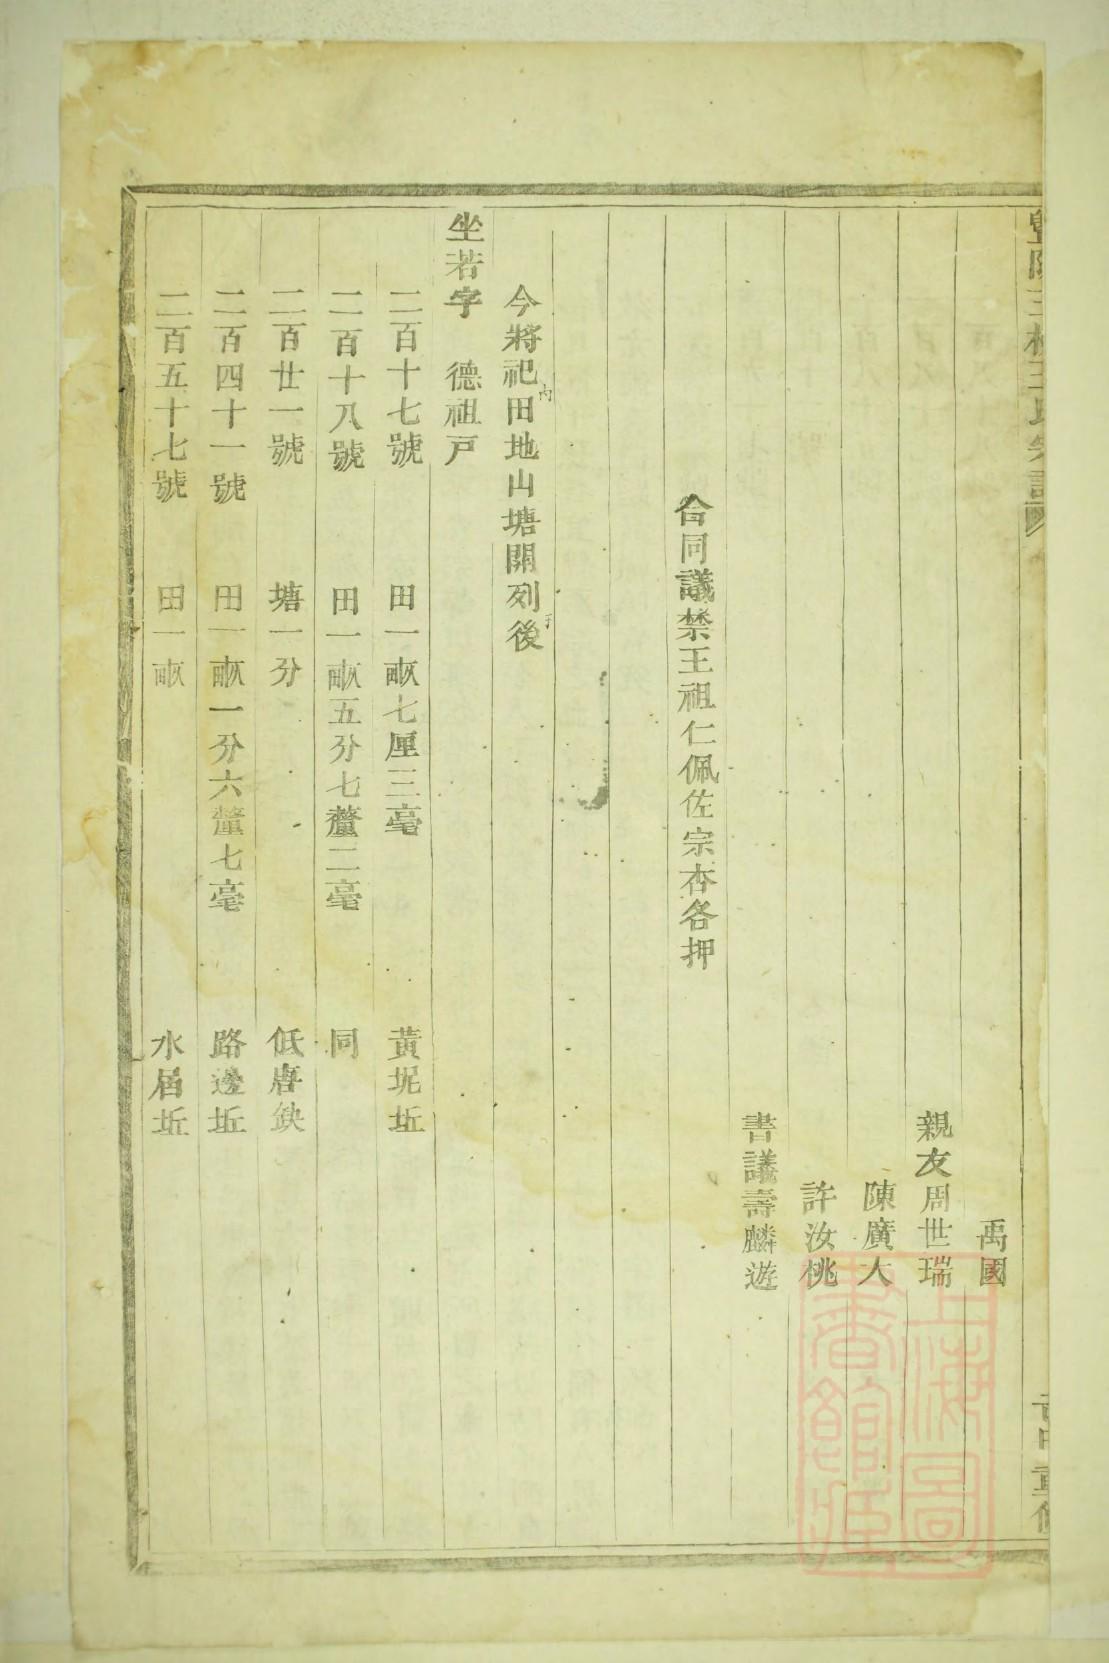 禹國
親友周世瑞
陳廣大
許汝桃
書議壽麟遊
合同議禁王祖仁佩佐宗杏各押
今將祀田地山塘開列後
坐若字 德祖戶
二百十七號 田一畝七厘三毫 黃坭坵
二百十八號 田一畝五分七釐二毫 同
二百廿一號 塘一分 低唐缺
二百四十一號 田一畝一分六釐七毫 路邊坵
二百五十七號 田一畝 水屆坵
上海圖書館藏